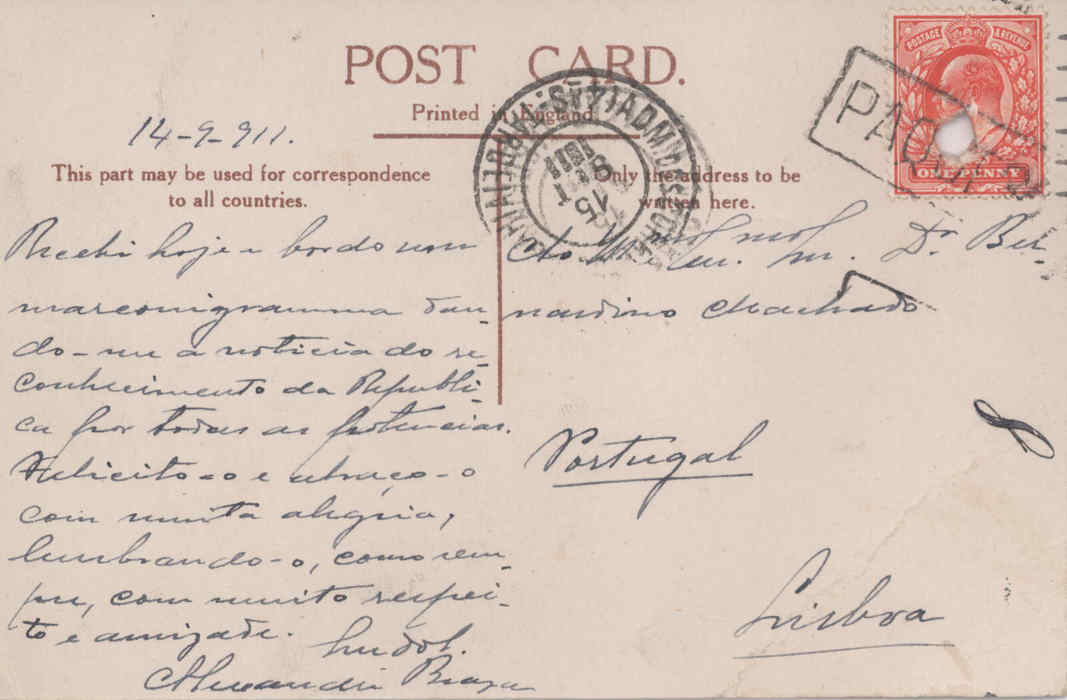 POST CARD.
Printed in England.
14-9-911.
This part may be used for correspondence
to all countries.
Only the address to be
written here.
POSTAGE & REVENUE
ONE PENNY
Recebi hoje a bordo um
marconigramma dan-
do-me a noticia do re-
conhecimento da Republi-
ca por todas as potencias.
Felicito-o e abraço-o
com muita alegria,
lembrando-o, como sem-
pre, com muito respei-
to e amizade.
Alexandre Braga
Ao Sr. Dr. Ber-
nardino Machado
Portugal
Lisboa